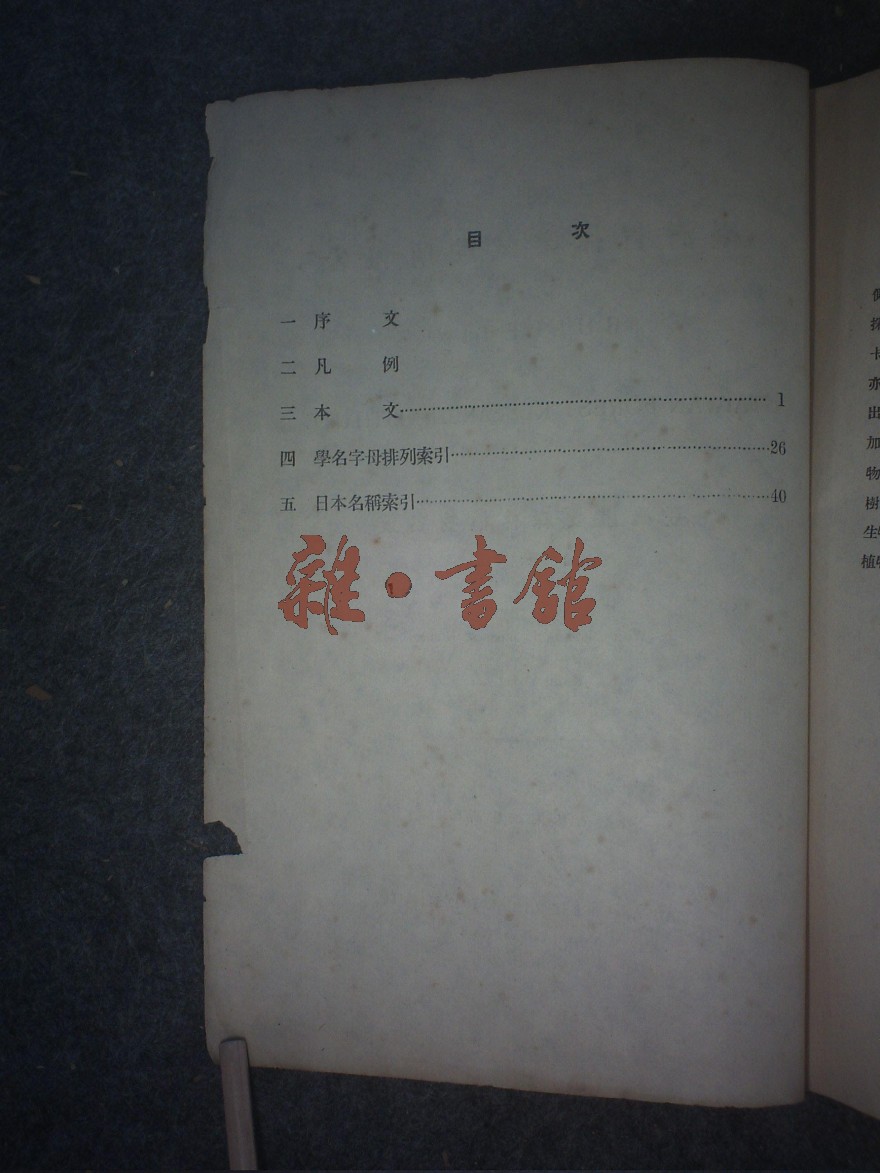 目 次
一 序 文
二 凡 例
三 本 文 1
四 學名字母排列索引 26
五 日本名稱索引 40
雜·書館
探
亦
出
加
物
樹
生
植